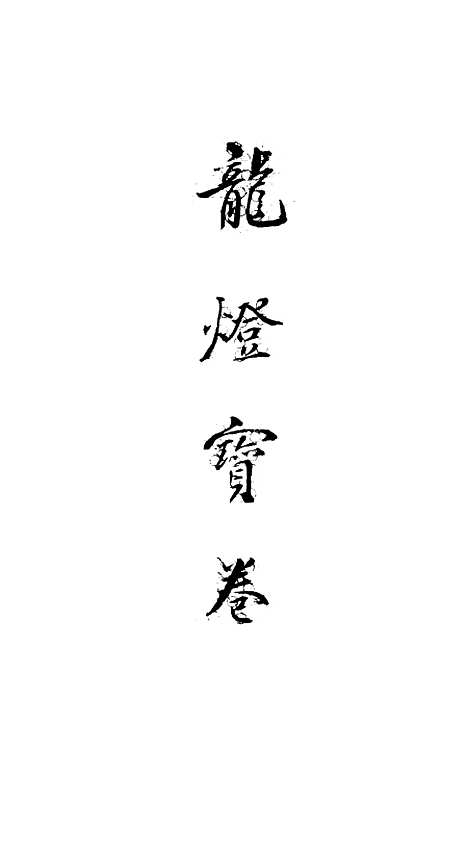 龍燈寶卷